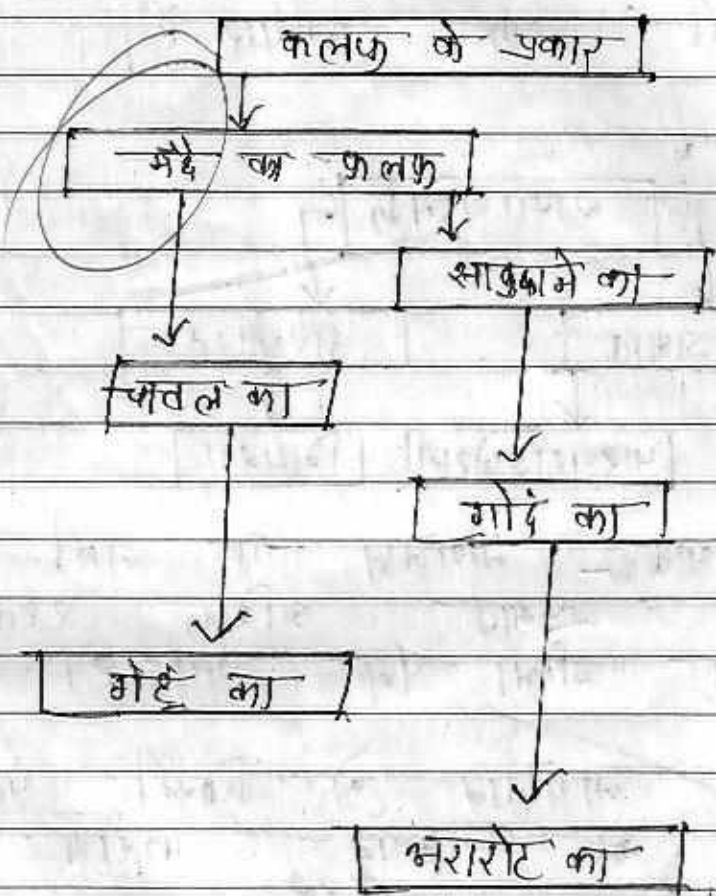 कलफ के प्रकार
मैदे का कलफ
साबुदाने का
चावल का
गोदं का
गेहूं का
अरारोट का